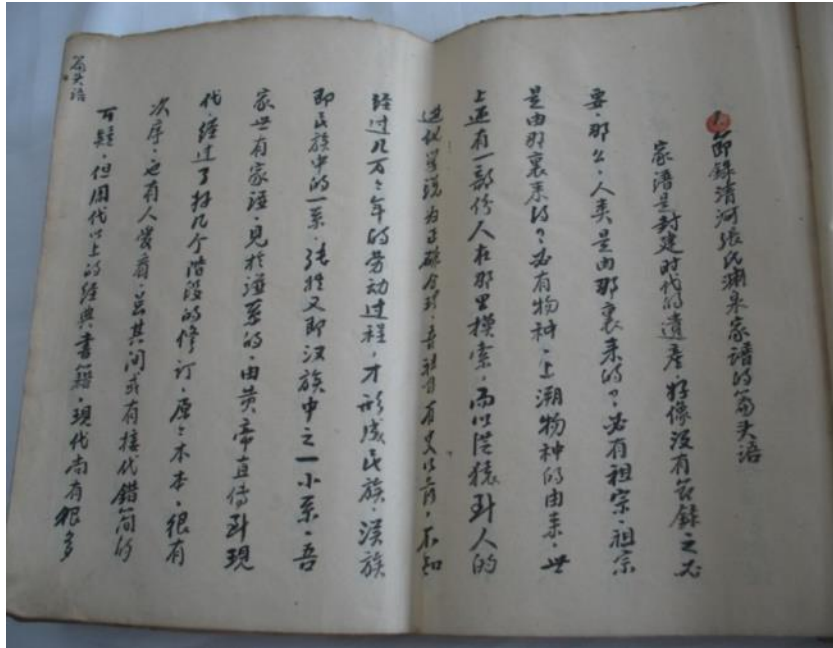 节録清河張氏渊泉家譜的篇头语
家譜是封建时代的遺産,好像没有节録之必
要,那么,人类是由那裏来的?必有祖宗,祖宗
是由那裏来的?必有物种,上溯物种的由来,世
上还有一部份人在那里摸索,而以从猿到人的
進化学说为正确合理,吾祖有史以前,不知
経过几万之年的劳动过程,才形成民族,漢族
即民族中的一系,張姓又即汉族中之一小系,吾
家世有家譜,見於譜系的,由黄帝直傳到現
代,経过了好几个階段的修订,原之木本,很有
次序,也有人覺着,吕其间或有接代錯简的
可疑,但周代以上的経典書籍,現代尚有很多
篇头语